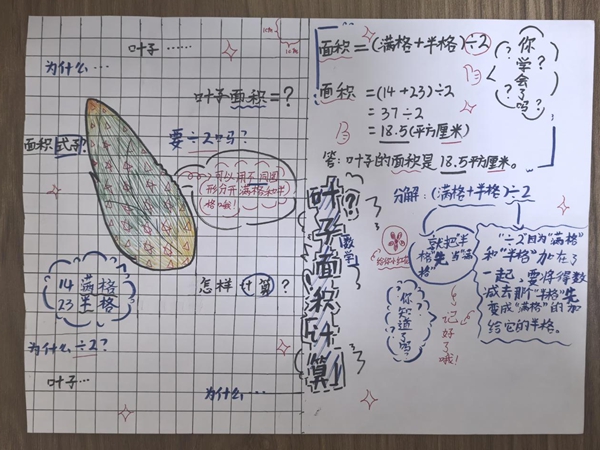 叶子……
为什么…
叶子面积=?
要÷2吗?
面积 式子?
可以用不同图
形分开满格和半
格哦!
14 满格
23 半格
怎样计算?
为什么÷2?
叶子…
为什么…
1厘米
1厘米
叶子面积计算
数学
?
面积=(满格+半格)÷2
面积 =(14+23)÷2
=37÷2
=18.5(平方厘米)
答:叶子的面积是18.5平方厘米。
你
学
会
了
吗?
分解:(满格+半格)÷2
就把半
格"先当"满
格"
"÷2"因为"满格"
和"半格"加在了
一起,要将得数
减去那个"半格"先
变成"满格"的加
给它的半格。
给你小红花
你
知
道
了
吗?
记
好
了
哦!